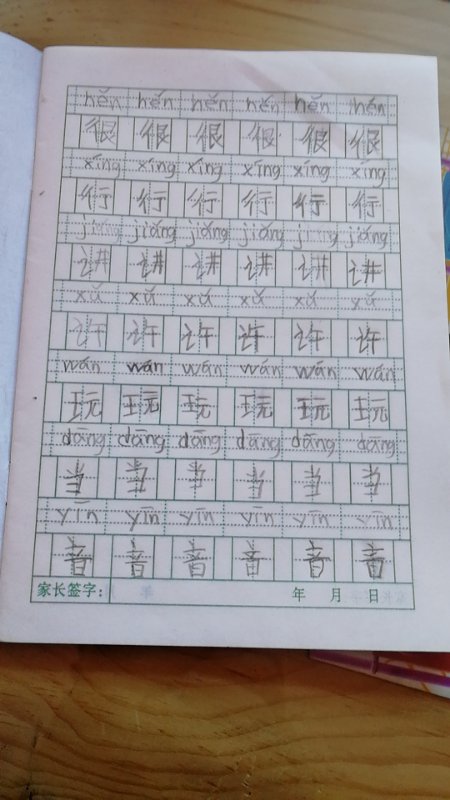 hěn hěn hěn hěn hěn hěn
很 很 很 很 很 很
xíng xíng xíng xíng xíng xíng
行 行 行 行 行 行
jiǎng jiǎng jiǎng jiǎng jiǎng
讲 讲 讲 讲 讲 讲
xǔ xǔ xǔ xǔ xǔ xǔ
许 许 许 许 许 许
wán wán wán wán wán wán
玩 玩 玩 玩 玩 玩
dāng dāng dāng dāng dāng dāng
当 当 当 当 当 当
yīn yīn yīn yīn yīn yīn
音 音 音 音 音 音
家长签字： 年 月 日